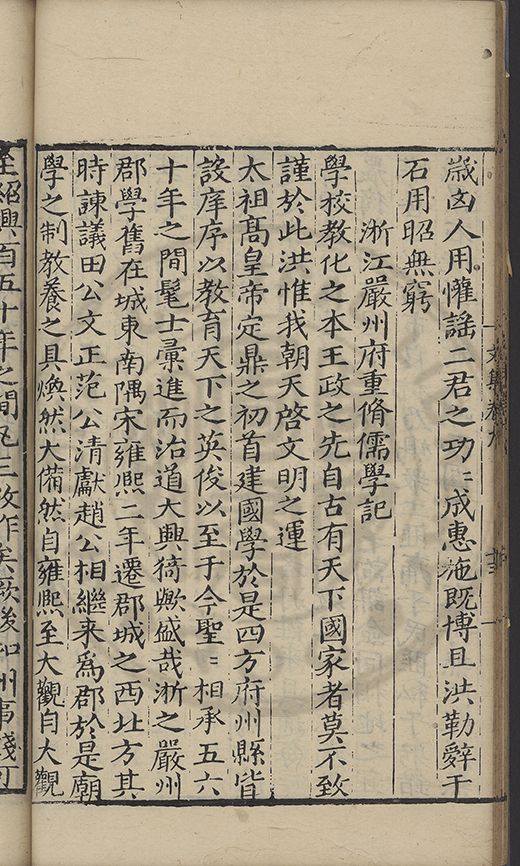 歲凶人用懽謡二君之功二成惠施既博且洪勒辭于
石用昭無窮
浙江嚴州府重脩儒學記
學校教化之本王政之先自古有天下國家者莫不致
謹於此洪惟我朝天啓文明之運
太祖髙皇帝定鼎之初首建國學於是四方府州縣皆
設庠序以教育天下之英俊以至于今聖二相承五六
十年之間髦士彙進而治道大興猗歟盛哉浙之嚴州
郡學舊在城東南隅宋雍熙二年遷郡城之西北方其
時諫議田公文正范公清獻趙公相繼来爲郡於是廟
學之制教養之具煥然大備然自雍熙至大觀自大觀
至紹興百五十年之間凡三改作矣厥後知州事錢可